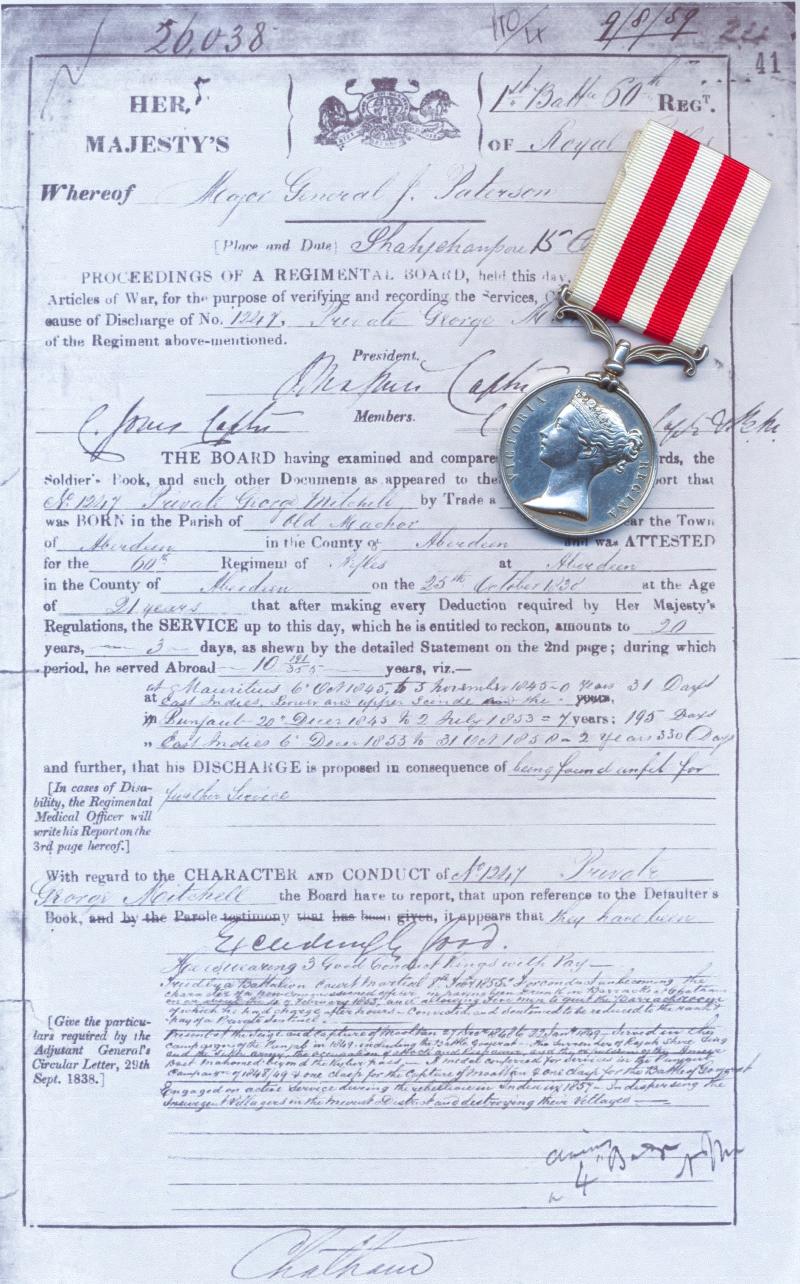 26,038 9/8/59
41
HER
MAJESTY'S
1st Battn 60th REGT.
OF Royal
Whereof Major General J. Paterson
[Place and Date] Shahjehanpore 15
PROCEEDINGS OF A REGIMENTAL BOARD, held this day,
Articles of War, for the purpose of verifying and recording the Services,
cause of Discharge of No. 1247, Private George
of the Regiment above-mentioned.
President.
Captn
C. Jones Captn Members.
VICTORIA REGINA
THE BOARD having examined and compare rds, the
Soldier's Book, and such other Documents as appeared to the port that
No 1247 Private George Mitchell by Trade a
was BORN in the Parish of Old Machar ar the Town
of Aberdeen in the County of Aberdeen and was ATTESTED
for the 60th Regiment of Rifles at Aberdeen
in the County of Aberdeen on the 25th October 1838 at the Age
of 21 years that after making every Deduction required by Her Majesty's
Regulations, the SERVICE up to this day, which he is entitled to reckon, amounts to 20
years, 3 days, as shewn by the detailed Statement on the 2nd page; during which
period, he served Abroad 10 191/365 years, viz.—
at Mauritius 6 Oct 1845, to 5 November 1845 = 0 years 31 Days
at East Indies, Lower and upper Scinde and the years,
in Punjaub 20th Decer 1845 to 2 July 1853 = 7 years; 195 Days
„ East Indies 6 Decer 1855 to 31 Oct 1858 = 2 years 330 Days
and further, that his DISCHARGE is proposed in consequence of being found unfit for
further Service
[In cases of Disa-
bility, the Regimental
Medical Officer will
write his Report on the
3rd page hereof.]
With regard to the CHARACTER AND CONDUCT of No 1247 Private
George Mitchell the Board have to report, that upon reference to the Defaulter's
Book, and by the Parole testimony that has been given, it appears that they have been
Exceedingly Good.
He is wearing 3 Good Conduct Rings with Pay —
Tried by a Battalion Court Martial 8th 1855 For conduct unbecoming the
character of a non commissioned officer in having been drunk in Barracks at Chatham
on or about the 9 February 1855, and allowing men to quit the Barrack room
of which he had charge after hours — Convicted and sentenced to be reduced to the rank &
pay of a Private Sentinel —
Present at the siege and capture of Mooltan 27 Decr 1848 to 22 Jany 1849 — Served in the
Campaign of the Punjab in 1849, including the Battle Goojerat — the surrender of Rajah Shere Sing
and the Sikh army, the occupation of Attock and
East Mahomed beyond the Kyber Pass. A medal conferred for Service in the Punjaub
Campaign of 1848/49 & one clasp for the Capture of Mooltan & one clasp for the Battle of Goojerat
Engaged on active Service during the rebellion in India in 1857 — In dispersing the
Insurgent Villagers in the Meerut District and destroying their Villages —
[Give the particu-
lars required by the
Adjutant General's
Circular Letter, 29th
Sept. 1838.]
Chatham